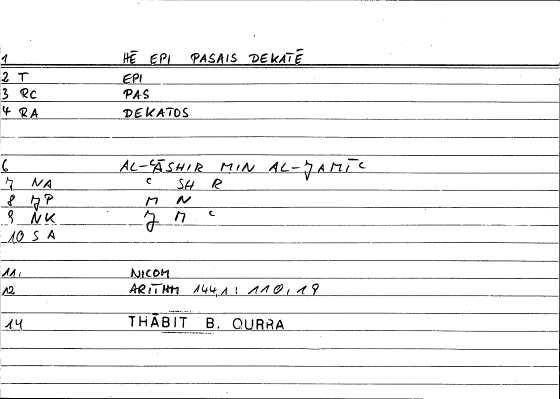 1 HĒ EPI PASAIS DEKATĒ
2 T EPI
3 RC PAS
4 RA DEKATOS
6 AL-ʿĀSHIR MIN AL-JAMĪʿ
7 NA ʿ SH R
8 JP M N
9 NK J M ʿ
10 S A
11. NICOM
12 ARITHM 144,1: 110,19
14 THĀBIT B. QURRA